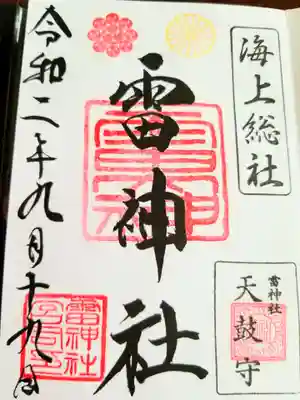 海上総社
雷神社
雷神社
天鼓守
令和二年九月十九日
雷神社